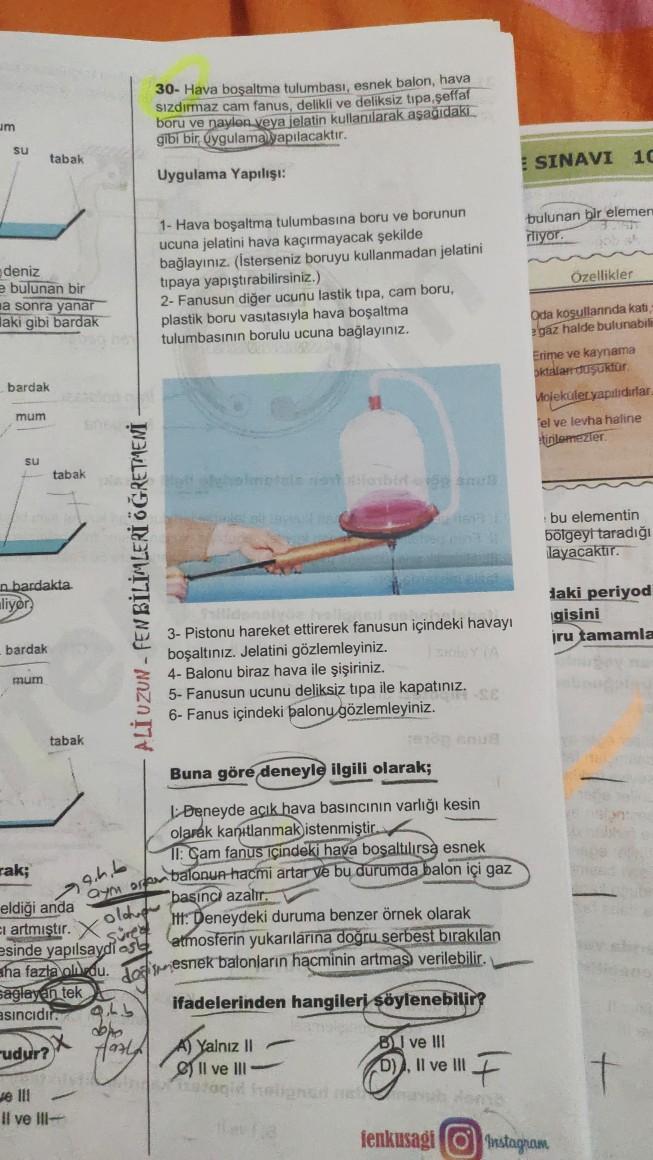 um
su
tabak
deniz
e bulunan bir
a sonra yanar
daki gibi bardak
bardak
mum
su
tabak
n bardakta
liyor.
bardak
mum
tabak
rak;
eldiği anda
cı artmıştır.
esinde yapılsaydı
aha fazla olurdu.
sağlayan tek
asıncıdır.
rudur?
ve III
II ve III
a.h.b
aynı ortam
olduğu
sürece
asla
değişmez
a.h.b
ALİ UZUN - FEN BİLİMLERİ ÖĞRETMENİ
30- Hava boşaltma tulumbası, esnek balon, hava
sızdırmaz cam fanus, delikli ve deliksiz tıpa,şeffaf
boru ve naylon veya jelatin kullanılarak aşağıdaki
gibi bir uygulama yapılacaktır.
Uygulama Yapılışı:
1- Hava boşaltma tulumbasına boru ve borunun
ucuna jelatini hava kaçırmayacak şekilde
bağlayınız. (İsterseniz boruyu kullanmadan jelatini
tıpaya yapıştırabilirsiniz.)
2- Fanusun diğer ucunu lastik tıpa, cam boru,
plastik boru vasıtasıyla hava boşaltma
tulumbasının borulu ucuna bağlayınız.
3- Pistonu hareket ettirerek fanusun içindeki havayı
boşaltınız. Jelatini gözlemleyiniz.
4- Balonu biraz hava ile şişiriniz.
5- Fanusun ucunu deliksiz tıpa ile kapatınız.
6- Fanus içindeki balonu gözlemleyiniz.
Buna göre deneyle ilgili olarak;
I: Deneyde açık hava basıncının varlığı kesin
olarak kanıtlanmak istenmiştir.
II: Cam fanus içindeki hava boşaltılırsa esnek
balonun hacmi artar ve bu durumda balon içi gaz
basıncı azalır.
III: Deneydeki duruma benzer örnek olarak
atmosferin yukarılarına doğru serbest bırakılan
esnek balonların hacminin artması verilebilir.
ifadelerinden hangileri söylenebilir?
A) Yalnız II
B) I ve III
C) II ve III
D) I, II ve III
fenkusagi
Instagram
E SINAVI 10
bulunan bir elemen
rliyor.
Özellikler
Oda koşullarında katı,
e gaz halde bulunabili
Erime ve kaynama
oktaları düşüktür.
Moleküler yapılıdırlar.
Tel ve levha haline
etirilemezler.
bu elementin
bölgeyi taradığı
layacaktır.
daki periyod
gisini
ru tamamla